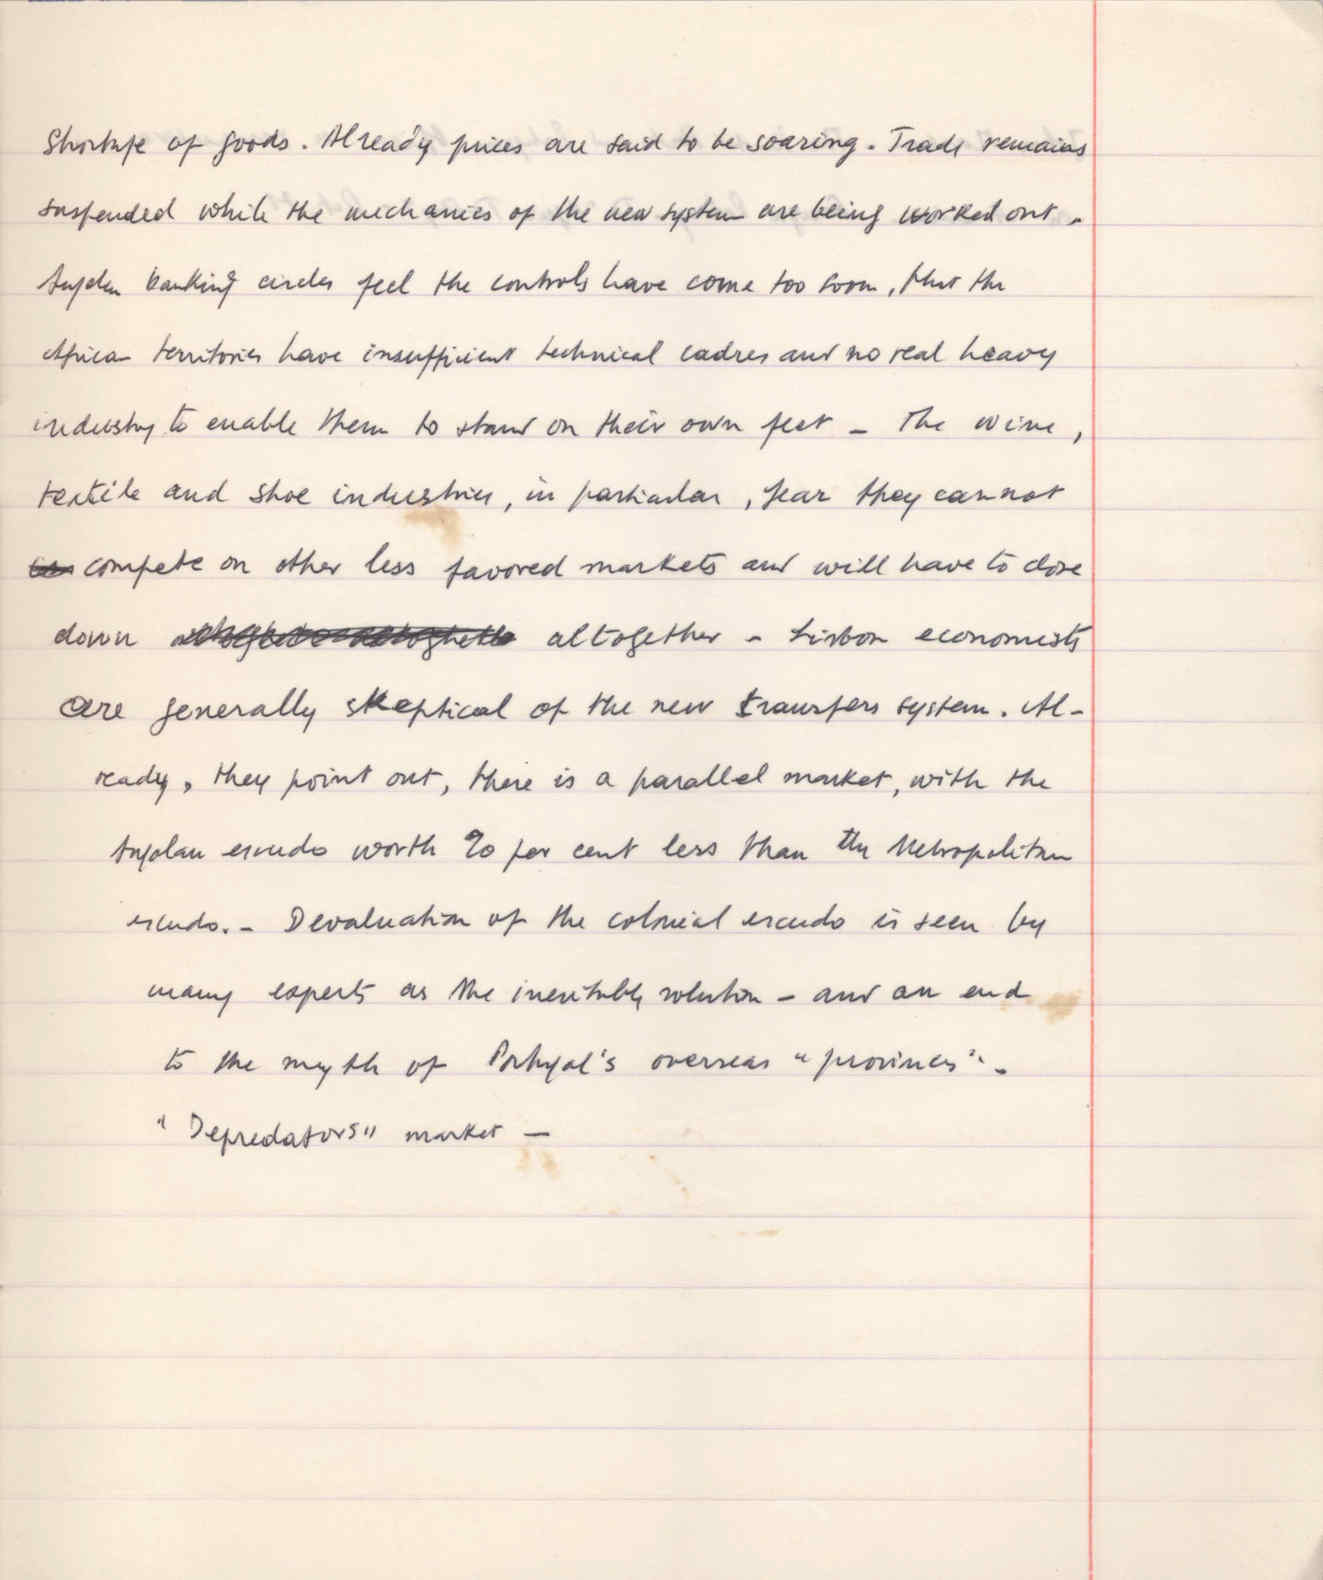 Shortage of goods. Already prices are said to be soaring. Trade remains
suspended while the mechanics of the new system are being worked out.
Angolan banking circles feel the controls have come too soon, that the
African territories have insufficient technical cadres and no real heavy
industry to enable them to stand on their own feet - The wine,
textile and shoe industries, in particular, fear they cannot
compete on other less favored markets and will have to close
down altogether - Lisbon economists
are generally skeptical of the new transfers system. Al-
ready, they point out, there is a parallel market, with the
Angolan escudo worth 20 per cent less than the Metropolitan
escudo. - Devaluation of the colonial escudo is seen by
many experts as the inevitably solution - and an end
to the myth of Portugal's overseas "provinces" -
"Depredators" market -